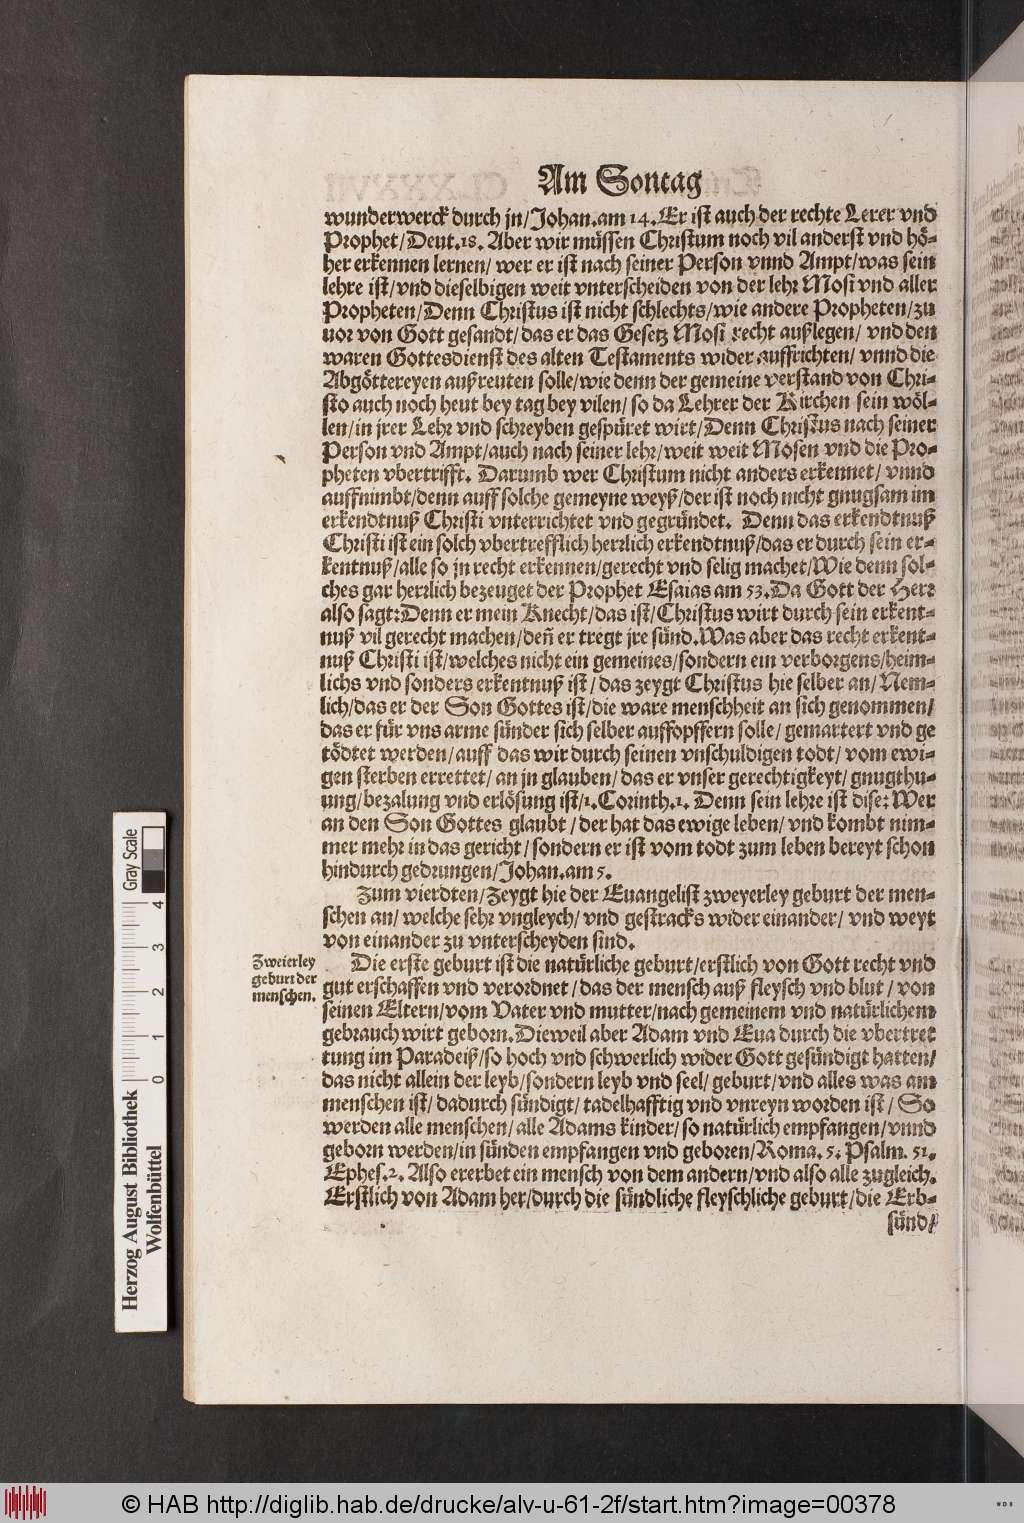 Am Sontag
wunderwerck durch jn/Johan.am 14.Er ist auch der rechte Lerer vnd
Prophet/Deut.18. Aber wir müssen Christum noch vil anderst vnd hö-
her erkennen lernen/ wer er ist nach seiner Person vnnd Ampt/was sein
lehre ist/vnd dieselbigen weit vnterscheiden von der lehr Mosi vnd aller
Propheten/Denn Christus ist nicht schlechts/wie andere Propheten/zu
uor von Gott gesandt/das er das Gesetz Mosi recht außlegen/ vnd den
waren Gottesdienst des alten Testaments wider auffrichten/ vnnd die
Abgöttereyen außreuten solle/wie denn der gemeine verstand von Chri-
sto auch noch heut bey tag bey vilen/ so da Lehrer der Kirchen sein wöl-
len/in jrer Lehr vnd schreyben gespüret wirt/Denn Christus nach seiner
Person vnd Ampt/auch nach seiner lehr/weit weit Mosen vnd die Pro-
pheten vbertrifft. Darumb wer Christum nicht anders erkennet/ vnnd
auffnimbt/denn auff solche gemeyne weyß/der ist noch nicht gnugsam im
erkendtnuß Christi vnterrichtet vnd gegründet. Denn das erkendtnuß
Christi ist ein solch vbertrefflich herrlich erkendtnuß/das er durch sein er-
kentnuß/alle so jn recht erkennen/gerecht vnd selig machet/Wie denn sol-
ches gar herrlich bezeuget der Prophet Esaias am 53.Da Gott der Herr
also sagt:Denn er mein Knecht/das ist/Christus wirt durch sein erkent-
nuß vil gerecht machen/deñ er tregt jre sünd.Was aber das recht erkent-
nuß Christi ist/welches nicht ein gemeines/sondern ein verborgens/heim-
lichs vnd sonders erkentnuß ist/das zeygt Christus hie selber an/Nem-
lich/das er der Son Gottes ist/die ware menschheit an sich genommen/
das er für vns arme sünder sich selber auffopffern solle/ gemartert vnd ge
tödtet werden/auff das wir durch seinen vnschuldigen todt/ vom ewi-
gen sterben errettet/ an jn glauben/das er vnser gerechtigkeyt/ gnugthu-
ung/bezalung vnd erlösung ist/1.Corinth.1. Denn sein lehre ist dise: Wer
an den Son Gottes glaubt/der hat das ewige leben/ vnd kombt nim-
mer mehr in das gericht/sondern er ist vom todt zum leben bereyt schon
hindurch gedrungen/Johan.am 5.
Zum vierdten/Zeygt hie der Euangelist zweyerley geburt der men-
schen an/ welche sehr vngleych/ vnd gestracks wider einander/ vnd weyt
von einander zu vnterscheyden sind.
Zweierley
geburt der
menschen.
Die erste geburt ist die natürliche geburt/erstlich von Gott recht vnd
gut erschaffen vnd verordnet/das der mensch auß fleysch vnd blut/ von
seinen Eltern/vom Vater vnd mutter/nach gemeinem vnd natürlichem
gebrauch wirt geborn.Dieweil aber Adam vnd Eua durch die vbertret
tung im Paradeiß/so hoch vnd schwerlich wider Gott gesündigt hatten/
das nicht allein der leyb/sondern leyb vnd seel/ geburt/vnd alles was am
menschen ist/ dadurch sündigt/ tadelhafftig vnd vnreyn worden ist/ So
werden alle menschen/alle Adams kinder/so natürlich empfangen/vnnd
geborn werden/in sünden empfangen vnd geboren/Roma. 5. Psalm. 51.
Ephes.2. Also ererbet ein mensch von dem andern/vnd also alle zugleich.
Erstlich von Adam her/durch die sündliche fleyschliche geburt/die Erb-
sünd/
Herzog August Bibliothek
Wolfenbüttel
0 1 2 3 4
Gray Scale
© HAB http://diglib.hab.de/drucke/alv-u-61-2f/start.htm?image=00378